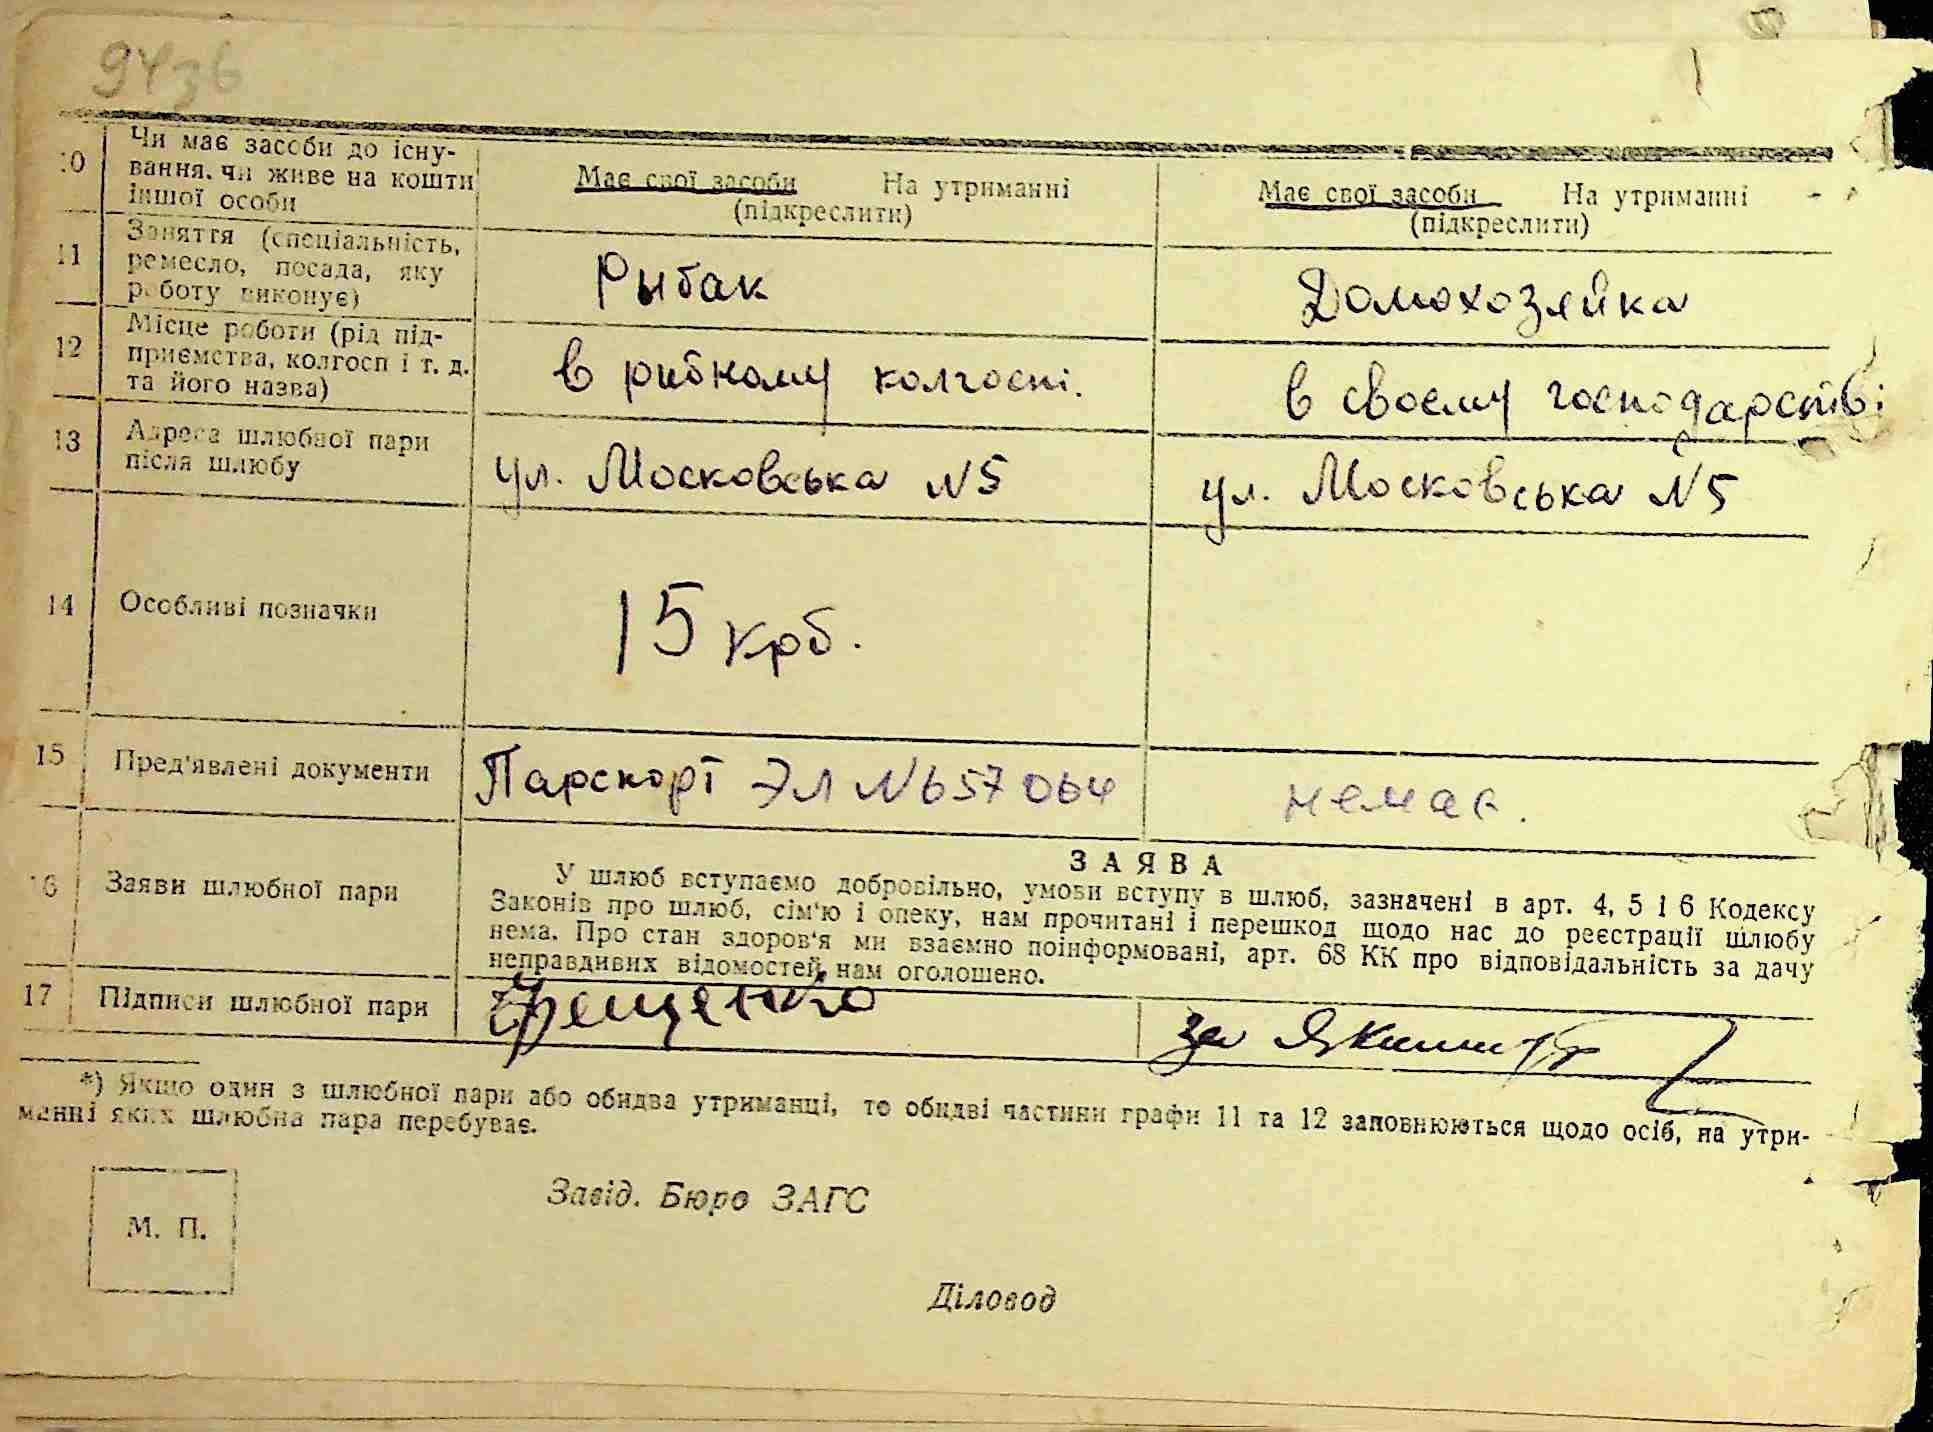 9436
10 Чи має засоби до існу-
вання, чи живе на кошти
іншої особи
Має свої засоби На утриманні
(підкреслити)
Має свої засоби На утриманні
(підкреслити)
11 Заняття (спеціальність,
ремесло, посада, яку
роботу виконує)
Рыбак
Домохозяйка
12 Місце роботи (рід під-
приємства, колгосп і т. д.
та його назва)
в рибному колгоспі.
в своєму господарстві
13 Адреса шлюбної пари
після шлюбу
ул. Московська N5
ул. Московська N5
14 Особливі позначки
15 крб.
15 Пред'явлені документи
Парспорт ЭЛ N657064
немає.
16 Заяви шлюбної пари
ЗАЯВА
У шлюб вступаємо добровільно, умови вступу в шлюб, зазначені в арт. 4, 5 і 6 Кодексу
Законів про шлюб, сім'ю і опеку, нам прочитані і перешкод щодо нас до реєстрації шлюбу
нема. Про стан здоров'я ми взаємно поінформовані, арт. 68 КК про відповідальність за дачу
неправдивих відомостей, нам оголошено.
17 Підписи шлюбної пари
за
*) Якщо один з шлюбної пари або обидва утриманці, то обидві частини графи 11 та 12 заповнюються щодо осіб, на утри-
манні яких шлюбна пара перебуває.
М. П.
Завід. Бюро ЗАГС
Діловод